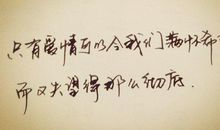 只有爱情可以令我们满怀希
而又失望得那么彻底.